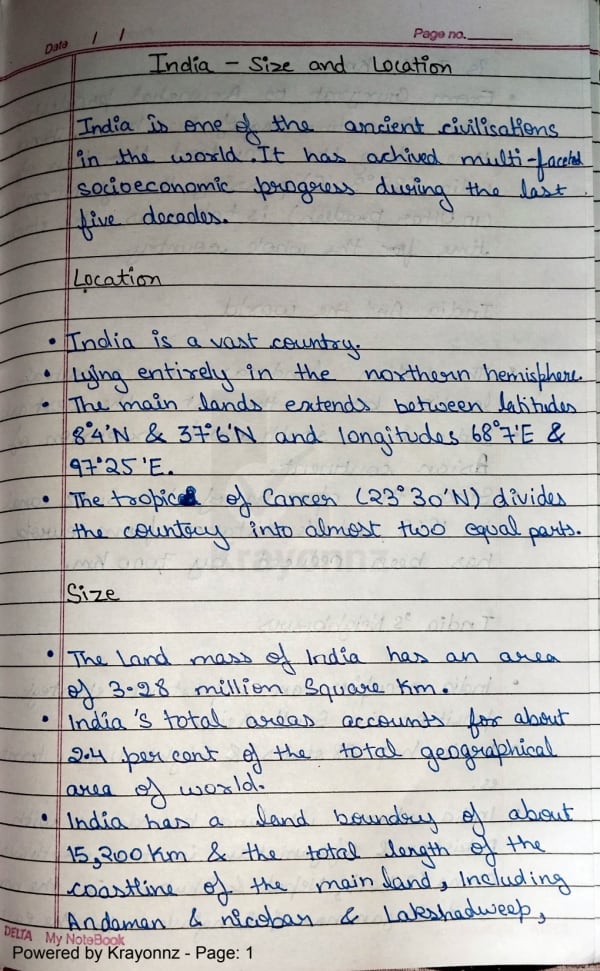 Date / / Page no.
India - Size and Location
India is one of the ancient civilisations
in the world. It has achived multi-faceted
socioeconomic progress during the last
five decades.
Location
• India is a vast country.
• Lying entirely in the northern hemisphere.
• The main lands extends between latitudes
8°4'N & 37°6'N and longitudes 68°7'E &
97°25'E.
• The tropic of Cancer (23°30'N) divides
the country into almost two equal parts.
Size
• The Land mass of India has an area
of 3.28 million Square Km.
• India's total areas accounts for about
2.4 per cent of the total geographical
area of world.
• India has a land boundry of about
15,200 Km & the total length of the
coastline of the main land, Including
Andaman & nicobar & Lakshadweep,
DELTA My NoteBook
Powered by Krayonnz - Page: 1